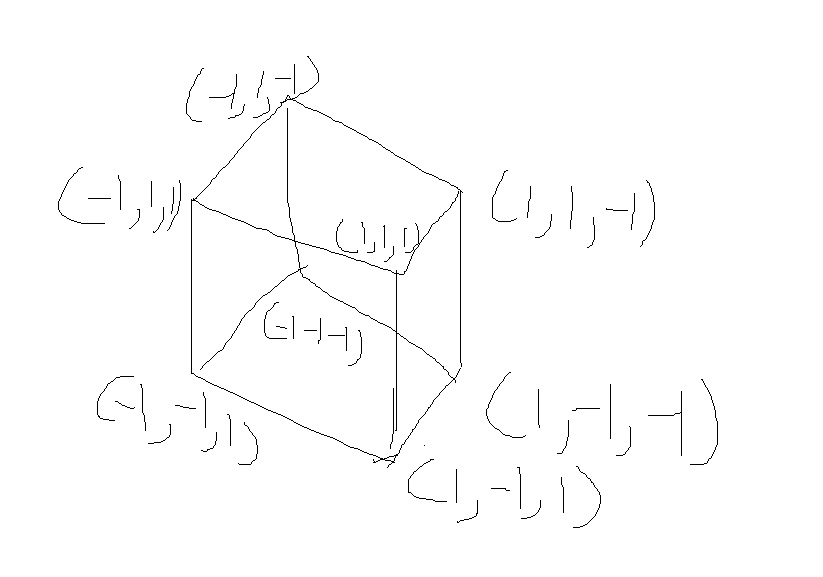 (-1,1,-1)
(-1,1,1)
(1,1,-1)
(1,1,1)
(-1-1-1)
(-1,-1,1)
(1,-1,-1)
(1,-1,1)